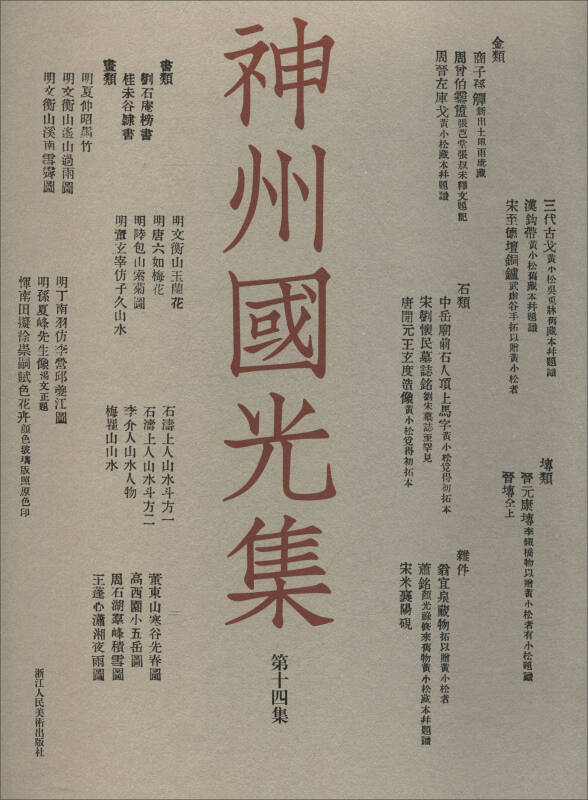 金類
商子孫觶新出土風雨樓藏
周曾伯霥簠張芑堂張叔未釋文題記
周晉左庫戈黃小松藏本并題識
三代古戈黃小松吳更牀舊藏本并題識
漢鈎帶黃小松舊藏本并題識
宋至德壇銅鑪武虛谷手拓以贈黃小松者
石類
中岳廟前石人項上馬字黃小松覓得初拓本
宋劉懷民墓誌銘劉宋墓誌至罕見
唐開元王玄度造像黃小松覓得初拓本
塼類
晉元康塼李鐵橋物以贈黃小松者有小松題識
晉塼仝上
雜件
翁宜泉藏物拓以贈黃小松者
蕭銘顏光祿修來舊物黃小松藏本并題識
宋米襄陽硯
神州國光集
第十四集
書類
劉石庵榜書
桂未谷隸書
畫類
明夏仲昭墨竹
明文衡山遙山過雨圖
明文衡山溪南雪霽圖
明文衡山玉蘭花
明唐六如梅花
明陸包山索菊圖
明董玄宰仿子久山水
明丁南羽仿李營邱夔江圖
明孫夏峰先生像湯文正題
惲南田擬徐崇嗣賦色花卉顏色玻璃版照原色印
石濤上人山水斗方一
石濤上人山水斗方二
李介人山水人物
梅瞿山山水
董東山寒谷先春圖
高西園小五岳圖
周石湖羣峰積雪圖
王蓬心瀟湘夜雨圖
浙江人民美術出版社